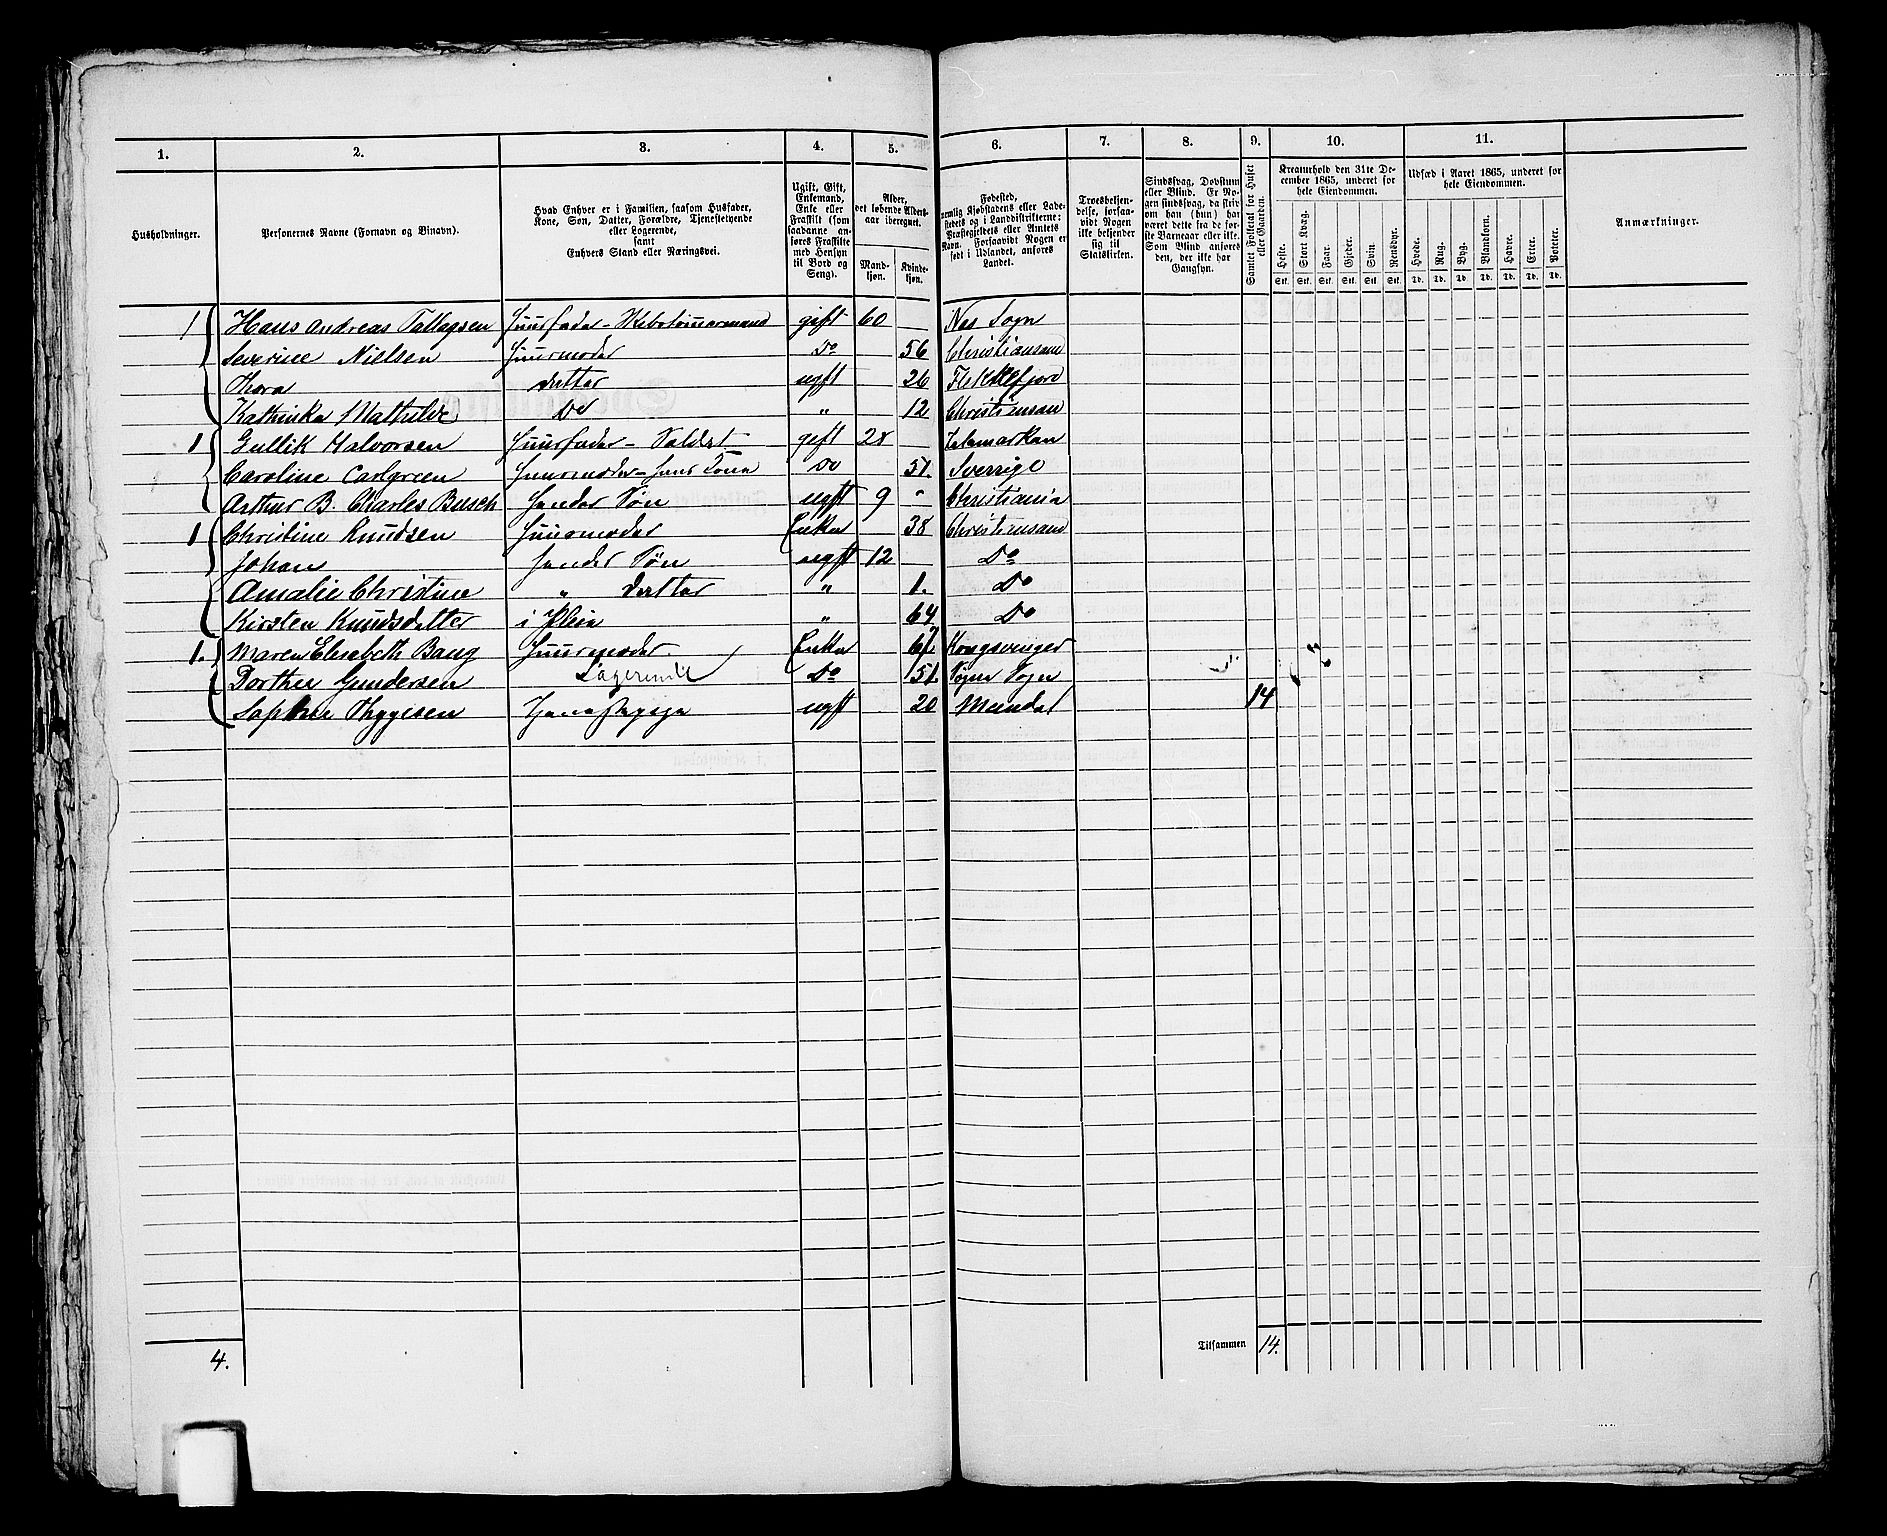 1. 2. 3. 4. 5. 6. 7. 8. 9. 10. 11.
Husholdninger.
Personernes Navne (Fornavn og Binavn).
Hvad Enhver er i Familien, saasom Husfader,
Kone, Søn, Datter, Forældre, Tjenestetyende
eller Logerende,
samt
Enhvers Stand eller Næringsvei.
Ugift, Gift,
Enkemand,
Enke eller
Fraskilt (som
saadanne an-
føres Fraskilte
med Hensyn
til Bord og
Seng).
Alder,
det løbende Alders-
aar iberegnet.
Mand-
kjøn.
Kvinde-
kjøn.
Fødested,
nemlig Kjøbstadens eller Lade-
stedets og i Landdistrikterne:
Præstegjeldets eller Amtets
Navn. Forsaavidt Nogen er
født i Udlandet, anføres
Landet.
Troesbekjen-
delse, forsaa-
vidt Nogen
ikke bekjender
sig til
Statskirken.
Sindssvag, Døvstum
eller Blind. Er No-
gen sindssvag, da skriv
om han (hun) har
været dette fra de før-
ste Barneaar eller ikke.
Som Blind anføres
den, der ikke har
Gangsyn.
Samlet Folketal for Huset
eller Gaarden.
Kreaturhold den 31te De-
cember 1865, underet for
hele Eiendommen.
Heste. Stort Kvæg. Faar. Gjeder. Svin. Rensdyr.
Stk. Stk. Stk. Stk. Stk. Stk.
Udsæd i Aaret 1865, underet for
hele Eiendommen.
Hvede. Rug. Byg. Blandkorn. Havre. Erter. Poteter.
Td. Td. Td. Td. Td. Td. Td.
Anmærkninger.
1 Hans Andreas Tallagsen Huusfader gift 60 Nes Sogn
Severine Nielsen Huusmoder Do 56 Christiansand
Thora datter ugft 26 Flekkefjord
Kathinka Mathilde Do " 12 Christiansan
1 Gullik Halvorsen Huusfader - Soldat gift 28 Telemarken
Caroline Carlgreen Huusmoder - hans Kone Do 51. Sverrige
Arthur B. Charles Busch hendes Søn ugft 9 " Christiania
1 Christine Knudsen Huusmoder Enke 38 Christiansand
Johan hendes Søn ugft 12 Do
Amalie Christine " datter " 1. Do
Kirsten Knudsdatter i Pleie " 64 Do
1. Maren Elisabeth Baug Huusmoder. Enke 61. Kongsvinger
Dorthea Gundersen Logerende Do 51 Søgne Sogn
Sophie Thygesen ugft 20 Mandal 14
4. Tilsammen 14.